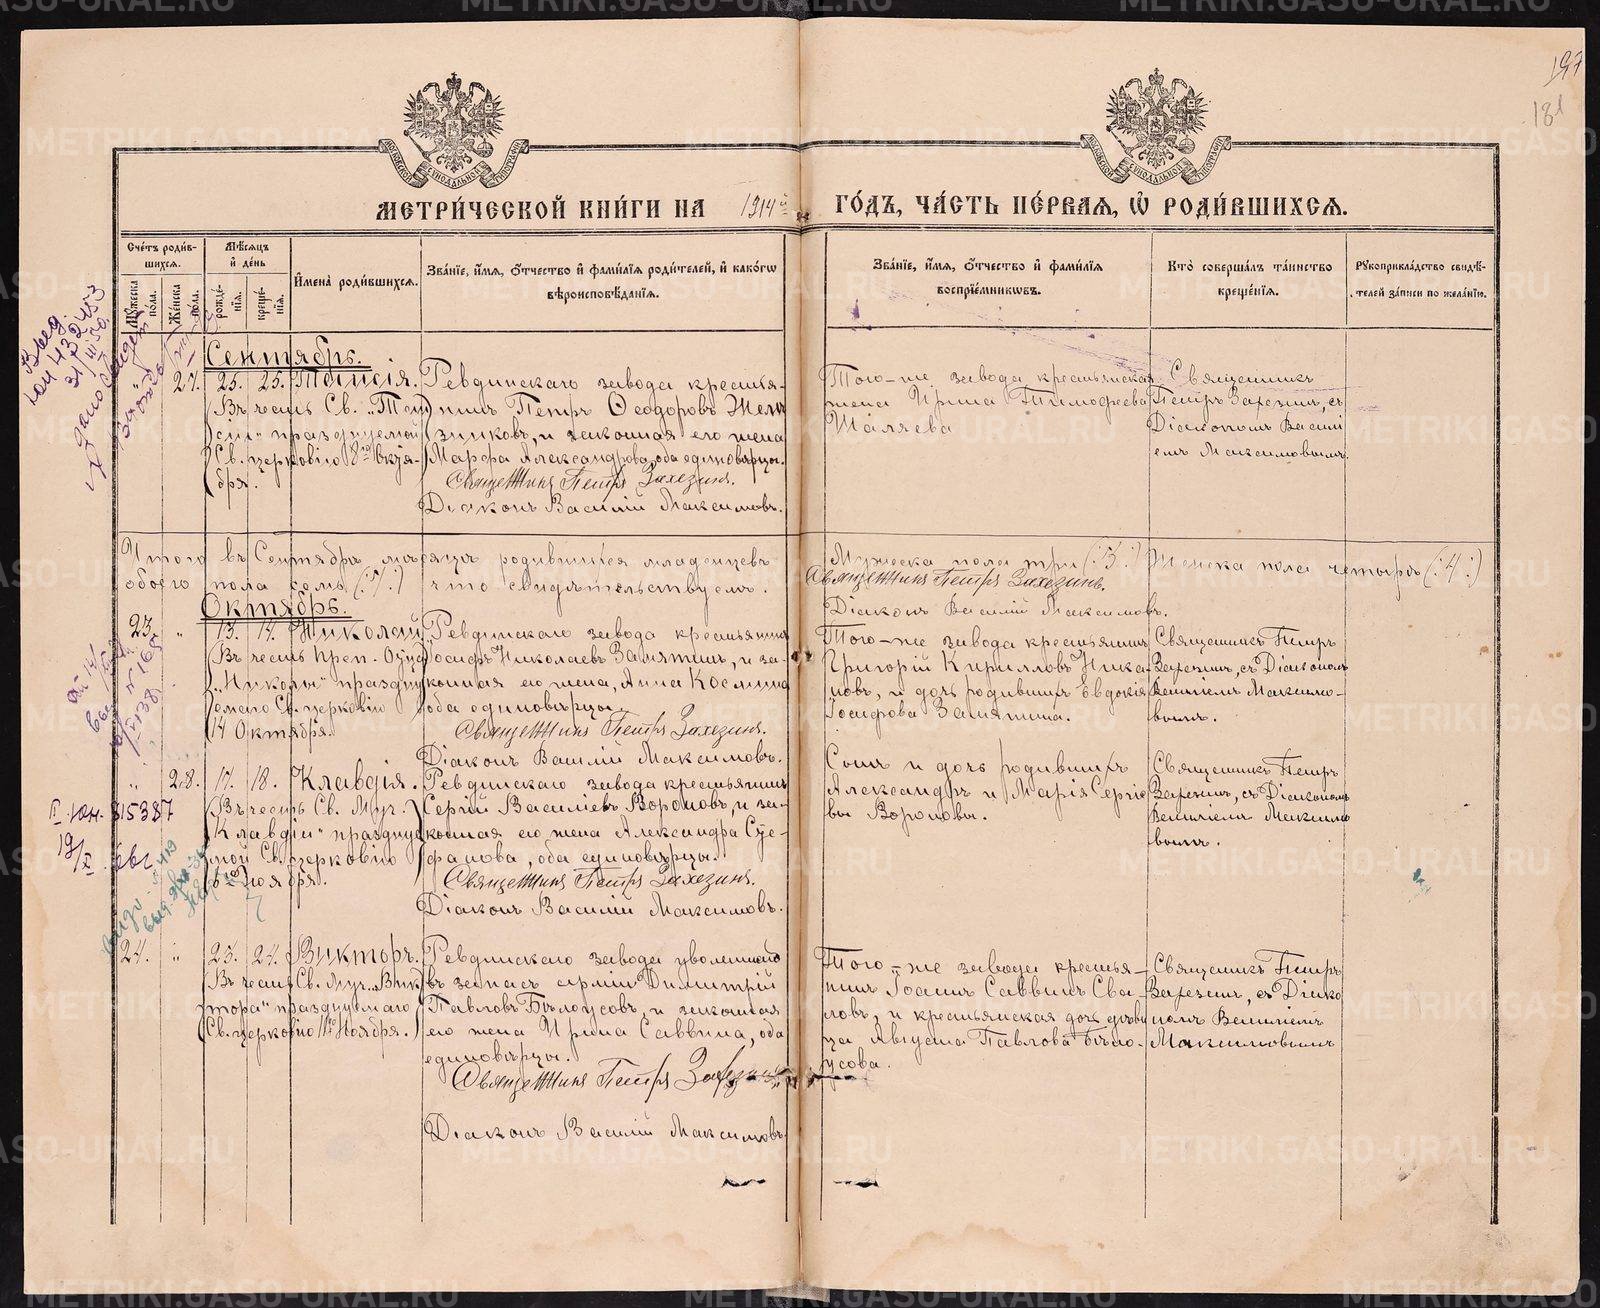 197
181
МЕТРИ́ЧЕСКОЙ КНИ́ГИ НА 1914й ГО́ДЪ, ЧА́СТЬ ПЕ́РВАЯ, Ѡ РОДИ́ВШИХСЯ.
Сче́тъ роди́в-
шихся.
Му́жеска по́ла.
Же́нска по́ла.
Мѣ́сяцъ
и де́нь
рожде́-
нія.
креще́-
нія.
Имена̀ роди́вшихся.
Зва́ніе, и́мя, о́тчество и фами́лія роди́телей, и како́гѡ
вѣроисповѣ́данія.
Зва́ніе, и́мя, о́тчество и фами́лія
воспріе́мниковъ.
Кто̀ соверша́лъ та́инство
креще́нія.
Рукоприкла́дство свидѣ́-
телей за́писи по жела́нію.
Сентябрь.
" 27. 25. 25. Таисія.
(Въ честь Св. „Таи
сіи" празднуемой
Св. церковію 8го Октя-
бря.
Ревдинскаго завода крестья-
нинъ Петръ Ѳеодоровъ Желѣ
зниковъ, и законная его жена
Марѳа Александрова, оба единовѣрцы.
Священникъ Петръ Захезинъ.
Діаконъ Василій Максимовъ.
Того-же завода крестьянская
жена Ирина Тимофеева
Шаляева
Священникъ
Петръ Захезинъ, съ
Діакономъ Василі
емъ Максимовымъ.
Итого въ Сентябрѣ мѣсяцѣ родившихся младенцевъ Мужеска пола три (:3:) Женска пола четыре (:4:)
обоего пола семь (:7:) что свидѣтельствуемъ. Священникъ Петръ Захезинъ.
Діаконъ Василій Максимовъ.
Октябрь.
23. " 13. 14. Николай
(Въ честь преп. Отца
„Николы" праздну
емаго Св. церковію
14 Октября.
Ревдинскаго завода крестьянинъ
Іосифъ Николаевъ Замятинъ, и за-
конная его жена, Анна Космина
оба единовѣрцы.
Священникъ Петръ Захезинъ.
Діаконъ Василій Максимовъ.
Того-же завода крестьянинъ
Григорій Кирилловъ Ника-
новъ, и дочь родившихъ Евдокія
Іосифова Замятина.
Священникъ Петръ
Захезинъ, съ Діакономъ
Василіемъ Максимо-
вымъ.
" 28. 17. 18. Клавдія.
(Въ честь Св. Муч.
Клавдіи" празднуе
мой Св. церковію
6го Ноября.
Ревдинскаго завода крестьянинъ
Сергій Василіевъ Вороновъ, и за-
конная его жена Александра Сте-
фанова, оба единовѣрцы.
Священникъ Петръ Захезинъ.
Діаконъ Василій Максимовъ.
Сынъ и дочь родившихъ
Александръ и Марія Сергіе
вы Вороновы.
Священникъ Петръ
Захезинъ, съ Діакономъ
Василіемъ Максимо
вымъ.
24. " 23. 24. Викторъ.
(Въ честь Св. Муч. „Вик
тора" празднуемаго
Св. церковію 11го Ноября.)
Ревдинскаго завода уволенный
въ запасъ арміи Димитрій
Павловъ Бѣлоусовъ, и законная
его жена Ирина Саввина, оба
единовѣрцы.
Священникъ Петръ Захезинъ
Діаконъ Василій Максимовъ.
Того-же завода крестья-
нинъ Іоаннъ Саввинъ Сва-
ловъ, и крестьянская дочь дѣви
ца Августа Павлова Бѣло-
усова.
Священникъ Петръ
Захезинъ, съ Діако
номъ Василіемъ
Максимовымъ